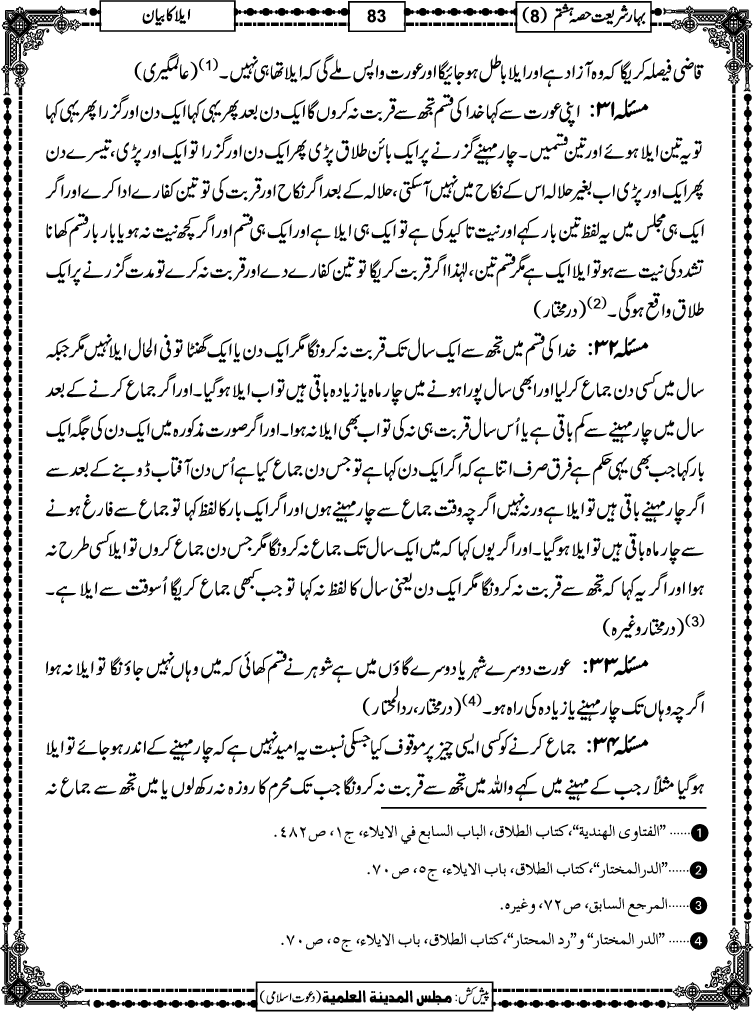 بہارِ شریعت حصہ ہشتم (8)
83
ایلا کا بیان
قاضی فیصلہ کریگا کہ وہ آزاد ہے اور ایلا باطل ہو جائیگا اور عورت واپس ملے گی کہ ایلا تھا ہی نہیں۔(1) (عالمگیری)
مسئلہ ۳۱: اپنی عورت سے کہا خدا کی قسم تجھ سے قربت نہ کروں گا ایک دن بعد پھر یہی کہا ایک دن اور گزرا پھر یہی کہا
تو یہ تین ایلا ہوئے اور تین قسمیں۔ چار مہینے گزرنے پر ایک بائن طلاق پڑی پھر ایک دن اور گزرا تو ایک اور پڑی، تیسرے دن
پھر ایک اور پڑی اب بغیر حلالہ اس کے نکاح میں نہیں آسکتی، حلالہ کے بعد اگر نکاح اور قربت کی تو تین کفارے ادا کرے اور اگر
ایک ہی مجلس میں یہ لفظ تین بار کہے اور نیت تاکید کی ہے تو ایک ہی ایلا ہے اور ایک ہی قسم اور اگر کچھ نیت نہ ہو یا بار بار قسم کھانا
تشدد کی نیت سے ہو تو ایلا ایک ہے مگر قسم تین، لہٰذا اگر قربت کریگا تو تین کفارے دے اور قربت نہ کرے تو مدت گزرنے پر ایک
طلاق واقع ہوگی۔(2) (درمختار)
مسئلہ ۳۲: خدا کی قسم میں تجھ سے ایک سال تک قربت نہ کرونگا مگر ایک دن یا ایک گھنٹا تو فی الحال ایلا نہیں مگر جبکہ
سال میں کسی دن جماع کرلیا اور ابھی سال پورا ہونے میں چار ماہ یا زیادہ باقی ہیں تو اب ایلا ہوگیا۔ اور اگر جماع کرنے کے بعد
سال میں چار مہینے سے کم باقی ہے یا اُس سال قربت ہی نہ کی تو اب بھی ایلا نہ ہوا۔ اور اگر صورت مذکورہ میں ایک دن کی جگہ ایک
بار کہا جب بھی یہی حکم ہے فرق صرف اتنا ہے کہ اگر ایک دن کہا ہے تو جس دن جماع کیا ہے اُس دن آفتاب ڈوبنے کے بعد سے
اگر چار مہینے باقی ہیں تو ایلا ہے ورنہ نہیں اگرچہ وقت جماع سے چار مہینے ہوں اور اگر ایک بار کا لفظ کہا تو جماع سے فارغ ہونے
سے چار ماہ باقی ہیں تو ایلا ہوگیا۔ اور اگر یوں کہا کہ میں ایک سال تک جماع نہ کرونگا مگر جس دن جماع کروں تو ایلا کسی طرح نہ
ہوا اور اگر یہ کہا کہ تجھ سے قربت نہ کرونگا مگر ایک دن یعنی سال کا لفظ نہ کہا تو جب کبھی جماع کریگا اُسوقت سے ایلا ہے۔
(3) (درمختار وغیرہ)
مسئلہ ۳۳: عورت دوسرے شہر یا دوسرے گاؤں میں ہے شوہر نے قسم کھائی کہ میں وہاں نہیں جاؤنگا تو ایلا نہ ہوا
اگرچہ وہاں تک چار مہینے یا زیادہ کی راہ ہو۔(4) (درمختار، ردالمحتار)
مسئلہ ۳۴: جماع کرنے کو کسی ایسی چیز پر موقوف کیا جسکی نسبت یہ امید نہیں ہے کہ چار مہینے کے اندر ہو جائے تو ایلا
ہوگیا مثلاً رجب کے مہینے میں کہے واللہ میں تجھ سے قربت نہ کرونگا جب تک محرم کا روزہ نہ رکھ لوں یا میں تجھ سے جماع نہ
1 ...... "الفتاوى الهندية"، كتاب الطلاق، الباب السابع في الإيلاء، ج١، ص٤٨٢.
2 ......"الدرالمختار"، كتاب الطلاق، باب الايلاء، ج٥، ص٧٠.
3 ......المرجع السابق، ص٧٢، وغيره.
4 ...... "الدر المختار" و"رد المحتار"، كتاب الطلاق، باب الايلاء، ج٥، ص٧٠.
پیش کش: مجلس المدينة العلمية (دعوت اسلامی)